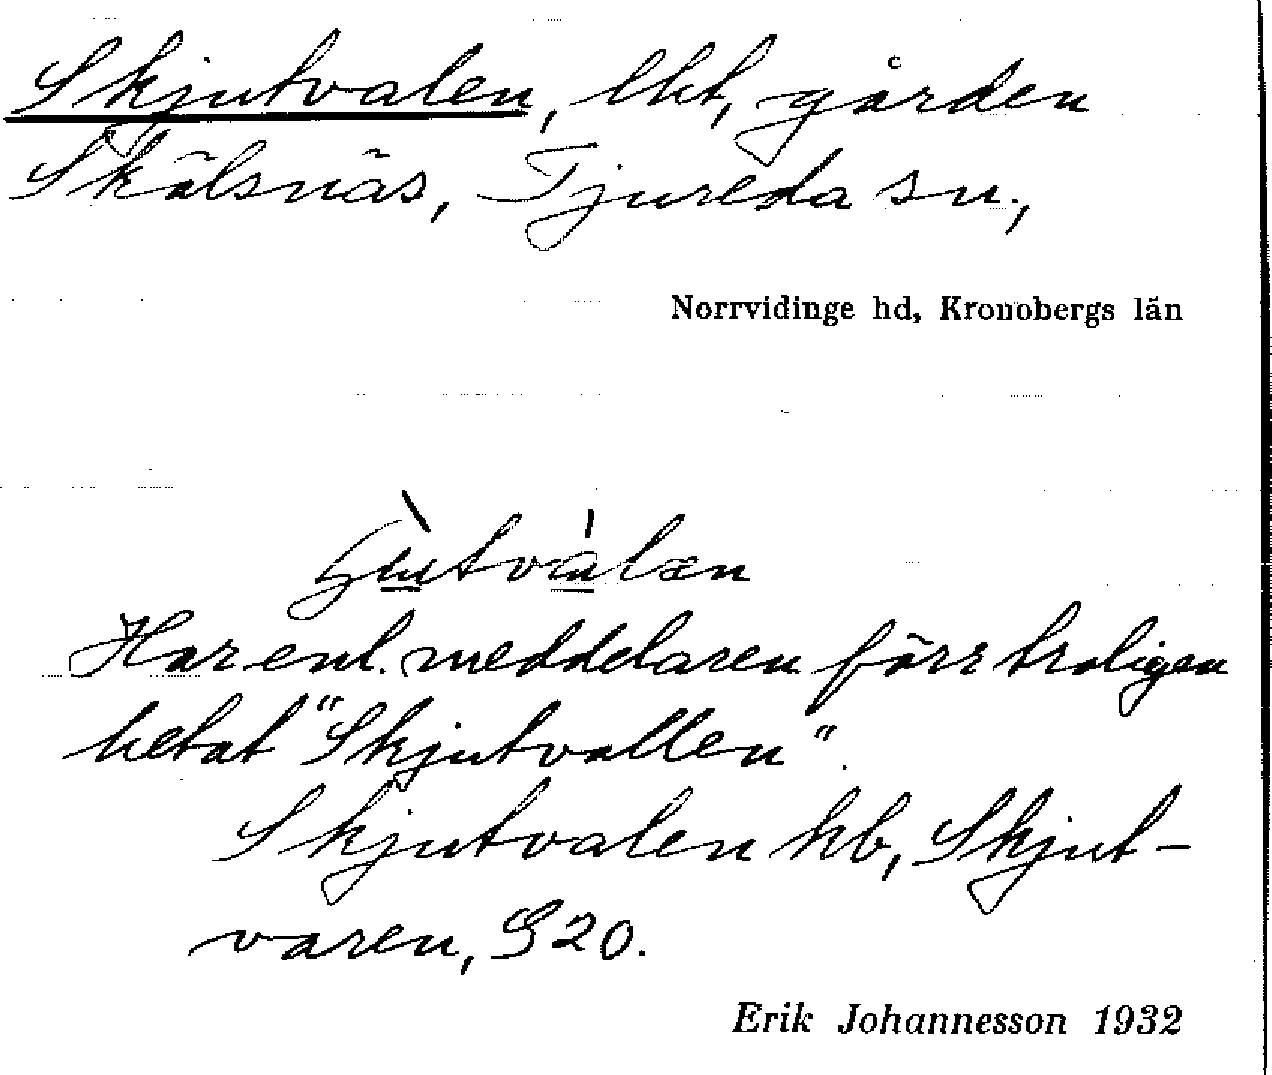 Skjutvalen, lht, gården
Skälsnäs, Tjureda sn.,
Norrvidinge hd, Kronobergs län
Har enl. meddelaren förr troligen
hetat "Skjutvallen".
Skjutvalen hb, Skjut-
varen, S 20.
Erik Johannesson 1932